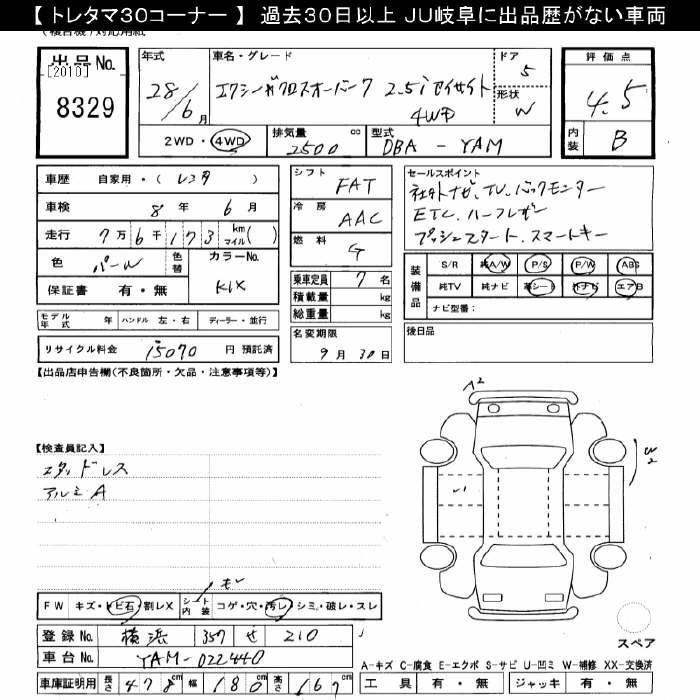 【 トレタマ30コーナー 】 過去30日以上 JU岐阜に出品歴がない車両
出品No.
[2010]
8329
年式
28/6月
車名・グレード
エクシーガクロスオーバー7 2.5i アイサイト
4WD
ドア
5
形状
W
評価点
4.5
内装
B
2WD・4WD
排気量 cc
2500
型式
DBA - YAM
車歴 自家用・( レンタ )
車検 8年 6月
走行 7万6千173 kmマイル( )
色 パール 色替
カラーNo.
K1X
保証書 有・無
モデル年式 年 ハンドル 左・右 ディーラー・並行
リサイクル料金 15070 円 預託済
シフト
FAT
冷房
AAC
燃料
G
乗車定員 7 名
積載量 kg
総重量 kg
名変期限
9月30日
セールスポイント
社外ナビ、TV、バックモニター
ETC、ハーフレザー
プッシュスタート、スマートキー
装備品
S/R 純A/W P/S P/W ABS
純TV 純ナビ 革シート 外ナビ エアB
ナビ型番:
後日品
【出品店申告欄(不良箇所・欠品・注意事項等)】
【検査員記入】
スタッドレス
アルミA
A2
W2
FW キズ・トビ石・割レX シート内装 コゲ・穴・汚レ・シミ・破レ・スレ
登録No. 横浜 357 せ 210
車台No. YAM-022440
車庫証明用 長さ 478cm 幅 180cm 高さ 167cm
スペア
A-キズ C-腐食 E-エクボ S-サビ U-凹ミ W-補修 XX-交換済
工具 有・無 ジャッキ 有・無